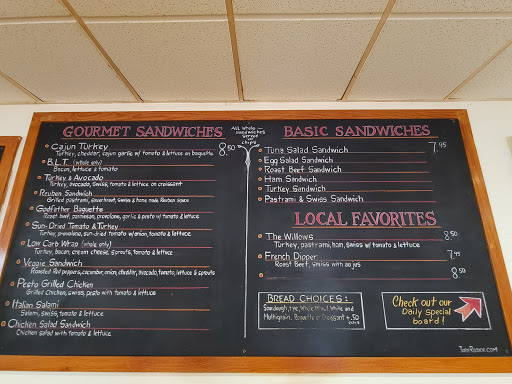 GOURMET SANDWICHES
Cajun Turkey 8.50
Turkey, cheddar, cajun garlic w/ tomato & lettuce on baguette
B.L.T. (whole only)
Bacon, lettuce & tomato
Turkey & Avocado
Turkey, avocado, swiss, tomato & lettuce on croissant
Reuben Sandwich
Grilled pastrami, sauerkraut, swiss & home made Reuben sauce
Godfather Baguette
Roast beef, parmesan, provolone, garlic & pesto w/ tomato & lettuce
Sun-Dried Tomato & Turkey
Turkey, provolone, sun-dried tomato w/onion, tomato & lettuce
Low Carb Wrap (whole only)
Turkey, bacon, cream cheese, sprouts, tomato & lettuce
Veggie Sandwich
Roasted Red peppers, cucumber, onion, cheddar, avocado, tomato, lettuce & sprouts
Pesto Grilled Chicken
Grilled Chicken, swiss, pesto with tomato & lettuce
Italian Salami
Salami, swiss, tomato & lettuce
Chicken Salad Sandwich
Chicken salad with tomato & lettuce
All whole
sandwiches
served
chips
BASIC SANDWICHES
Tuna Salad Sandwich 7.95
Egg Salad Sandwich
Roast Beef Sandwich
Ham Sandwich
Turkey Sandwich
Pastrami & Swiss Sandwich
LOCAL FAVORITES
The Willows 8.50
Turkey, pastrami, ham, swiss w/ tomato & lettuce
French Dipper 7.95
Roast Beef, swiss with au jus
8.50
BREAD CHOICES:
Sourdough, rye, whole wheat, white and
Multigrain, Baguette or Croissant +.50
extra
Check out our
Daily Special
board!